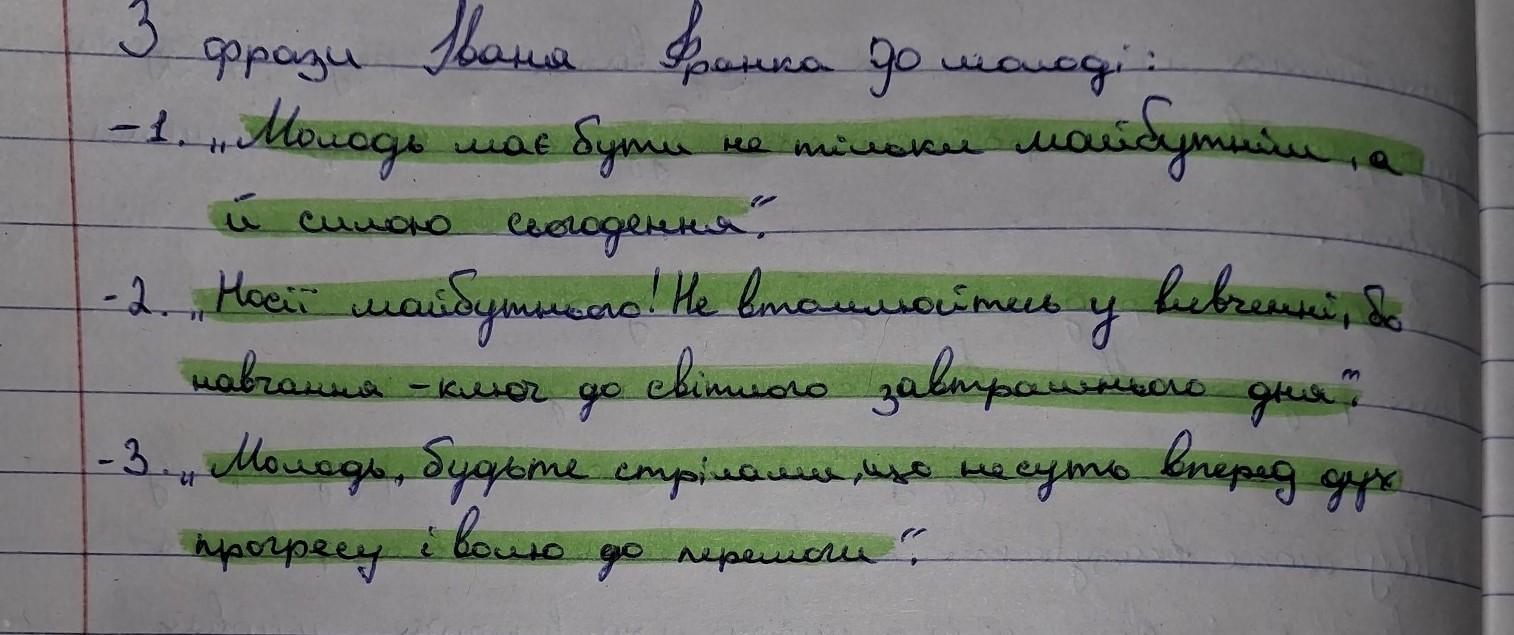 3 фрази Івана Франка до молоді:
-1. „Молодь має бути не тільки майбутнім, а
й силою сьогодення".
-2. „Носії майбутнього! Не втомлюйтесь у вивченні, бо
навчання - ключ до світлого завтрашнього дня".
-3. „Молодь, будьте стрілами, що несуть вперед дух
прогресу і волю до перемоги".